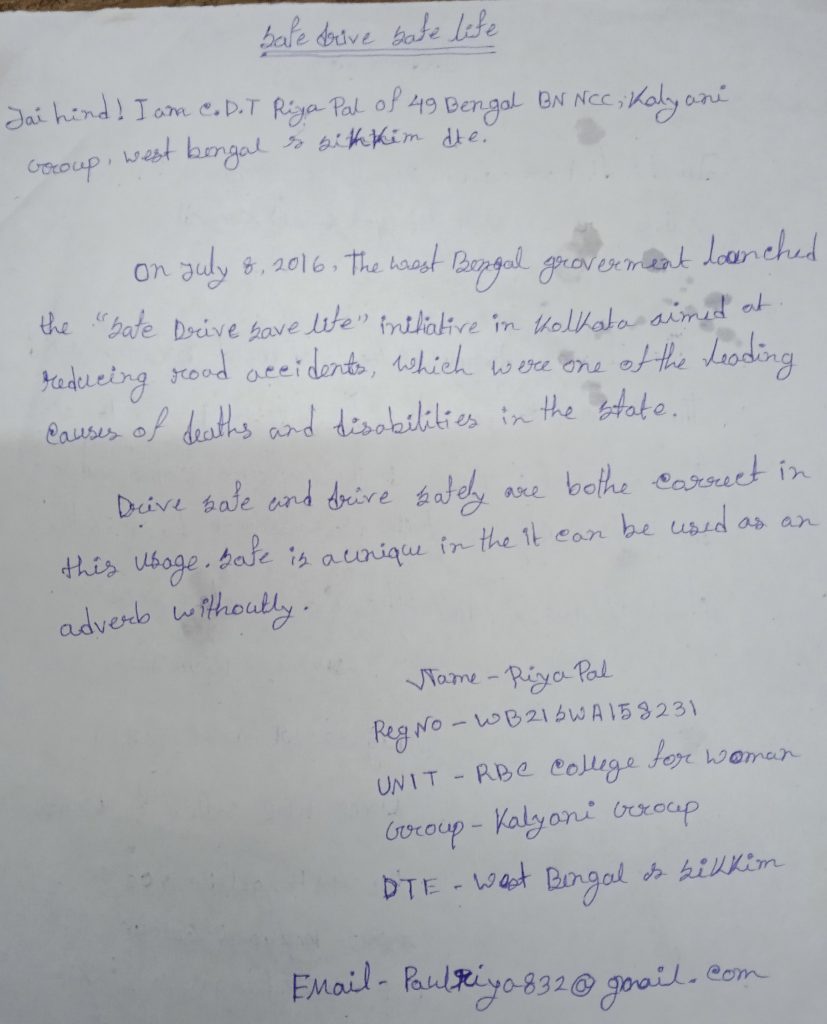 Safe drive safe life
Jai hind! I am C.D.T Riya Pal of 49 Bengal BN NCC, Kalyani
Group, west bengal & sikkim dte.
On July 8, 2016, The west Bengal groverment launched
the "Safe Drive save life" initiative in Kolkata aimed at
reducing road accidents, which were one of the leading
causes of deaths and disabilities in the state.
Drive safe and drive safely are bothe correct in
this usage. Safe is a unique in the it can be used as an
adverb withoutly.
Name - Riya Pal
Reg No - WB21SWA158231
UNIT - RBC College for woman
Group - Kalyani Group
DTE - West Bengal & Sikkim
EMail - Paulriya832@gmail.com